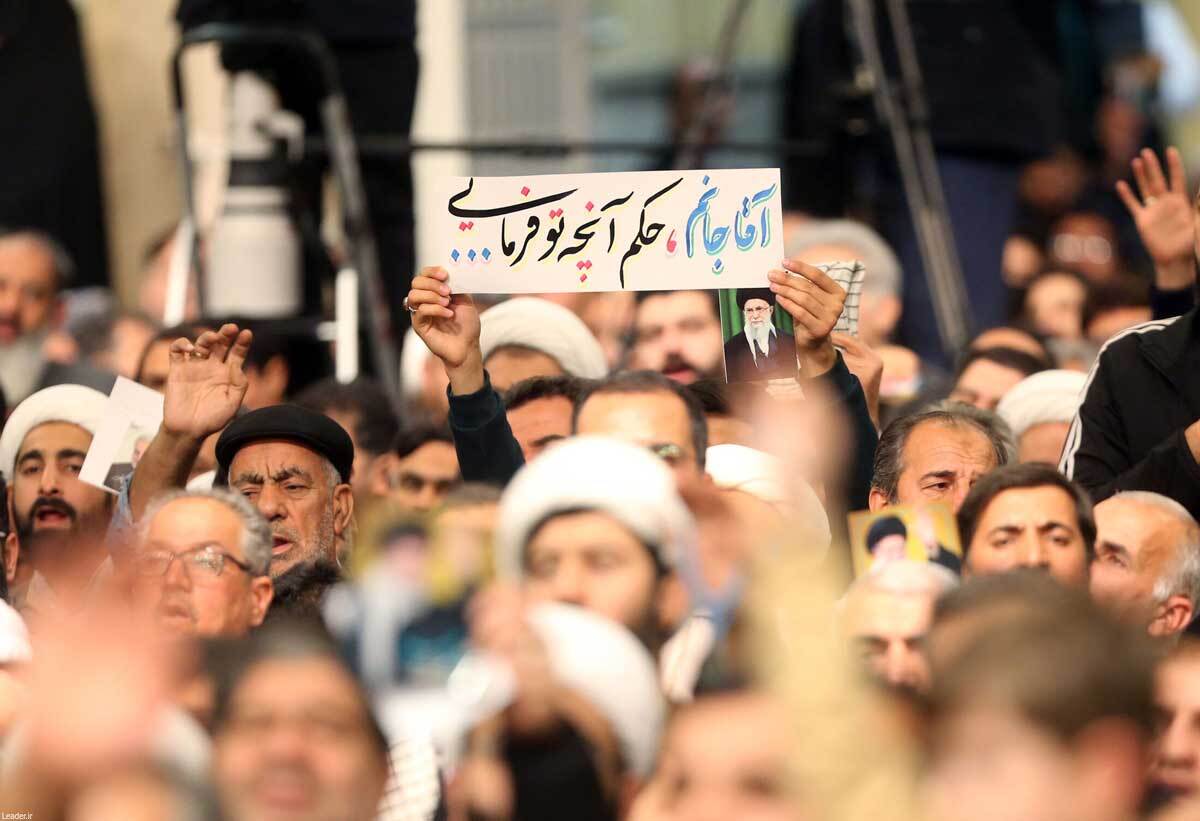 آقا جانم، حکم آنچه تو فرمایی...
Leader.ir